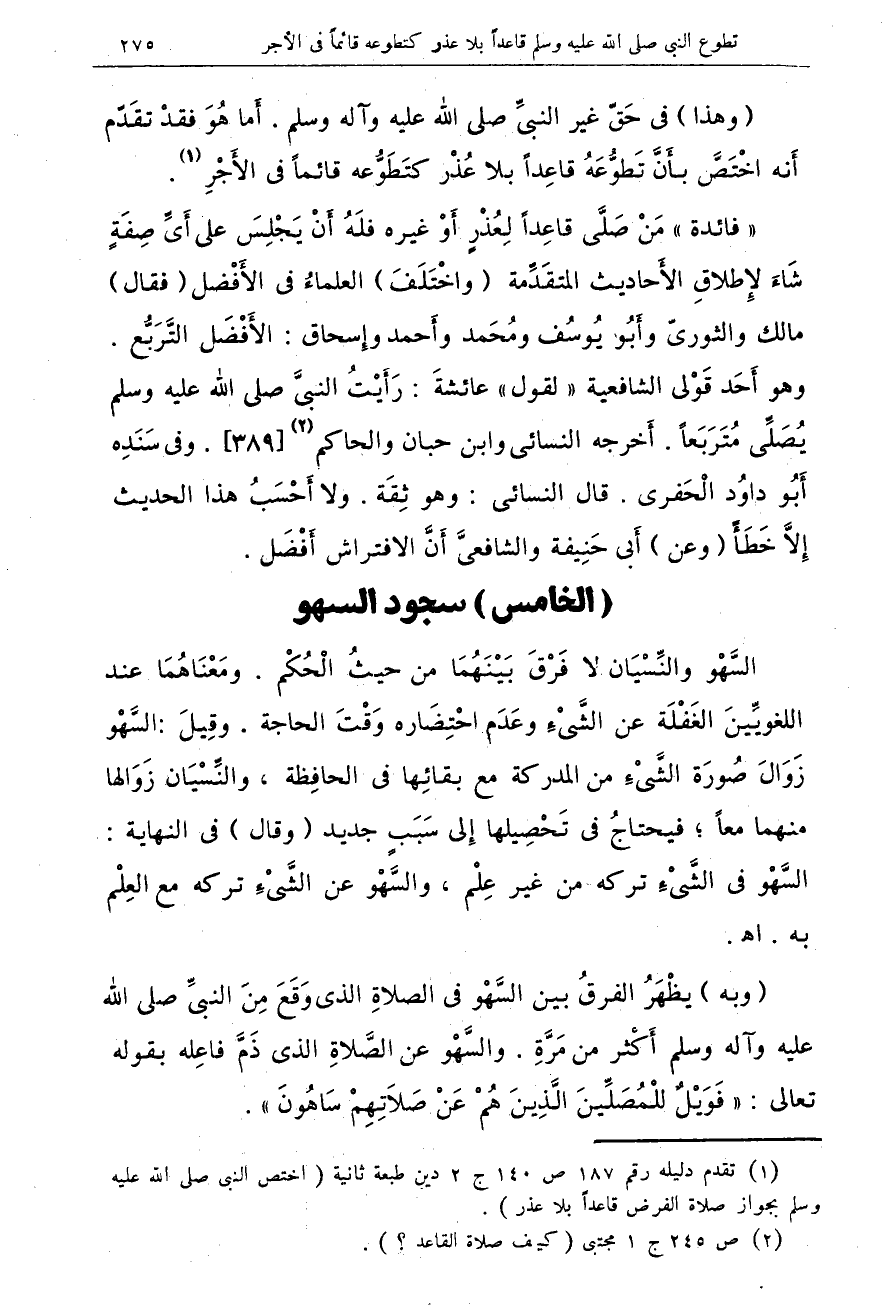 تطوع النبي صلى الله عليه وسلم قاعداً بلا عذر كتطوعه قائماً فى الأجر ٢٧٥
( وهذا ) فى حَقّ غير النبىِّ صلى الله عليه وآله وسلم . أَما هُوَ فقدْ تقدّم
أَنه اخْتَصَّ بـأَنَّ تَطوُّعَهُ قاعِداً بلا عُذْر كتَطَوُّعه قائمـاً فى الأَجْرِ (١) .
« فائدة » مَنْ صَلَّى قاعِداً لِعُذْرٍ أَوْ غيره فلَهُ أَنْ يَجْلِسَ على أَىِّ صِفَةٍ
شَاءَ لإِطلاقِ الأَحاديث المتقدِّمة ( واخْتَلَفَ ) العلماءُ فى الأَفْضل ( فقال )
مالك والثورىّ وأَبُو يُوسُف ومُحَمد وأَحمد وإِسحاق : الأَفْضَل التَّرَبُّع .
وهو أَحَد قَوْلى الشافعية « لقول » عائشةَ : رَأَيْتُ النبىَّ صلى الله عليه وسلم
يُصَلِّى مُتَرَبعاً . أَخرجه النسائى وابن حبان والحاكم (٢) [٣٨٩] . وفى سَنَدِه
أَبُو داوُد الْحَفرى . قال النسائى : وهو ثِقَة . ولا أَحْسَبُ هذا الحديث
إِلاَّ خَطَأً ( وعن ) أَبى حَنِيفة والشافعىِّ أَنَّ الافتراش أَفْضَل .
( الخامس ) سجود السهو
السَّهْو والنِّسْيَان لا فَرْقَ بَيْنَهُمَا من حيثُ الْحُكْم . ومَعْنَاهُمَا عند
اللغويِّينَ الغَفْلَة عن الشَّىْءِ وعَدَم احْتِضَاره وَقْتَ الحاجة . وقِيلَ : السَّهْو
زَوَالَ صُورَة الشَّىْءِ من المدركة مع بقائها فى الحافِظة ، والنِّسْيَان زَوَالها
منهما معاً ؛ فيحتاجُ فى تَحْصِيلها إِلى سَبَبٍ جديد ( وقال ) فى النهاية :
السَّهْو فى الشَّىْءِ تركه من غير عِلْم ، والسَّهْو عن الشَّىْءِ تركه مع العِلْم
به . اهـ .
( وبه ) يظْهَرُ الفرقُ بين السَّهْو فى الصلاةِ الذى وَقَعَ مِنَ النبىِّ صلى الله
عليه وآله وسلم أَكْثر من مَرَّةِ . والسَّهْو عن الصَّلاةِ الذى ذَمَّ فاعِله بقوله
تعالى : « فَوَيْلٌ للْمُصَلِّينَ الَّذِينَ هُمْ عَنْ صَلاَتِهِمْ سَاهُونَ » .
(١) تقدم دليله رقم ١٨٧ ص ١٤٠ ج ٢ دين طبعة ثانية ( اختص النبى صلى الله عليه
وسلم بجواز صلاة الفرض قاعداً بلا عذر ) .
(٢) ص ٢٤٥ ج ١ مجتبى ( كيف صلاة القاعد ؟ ) .